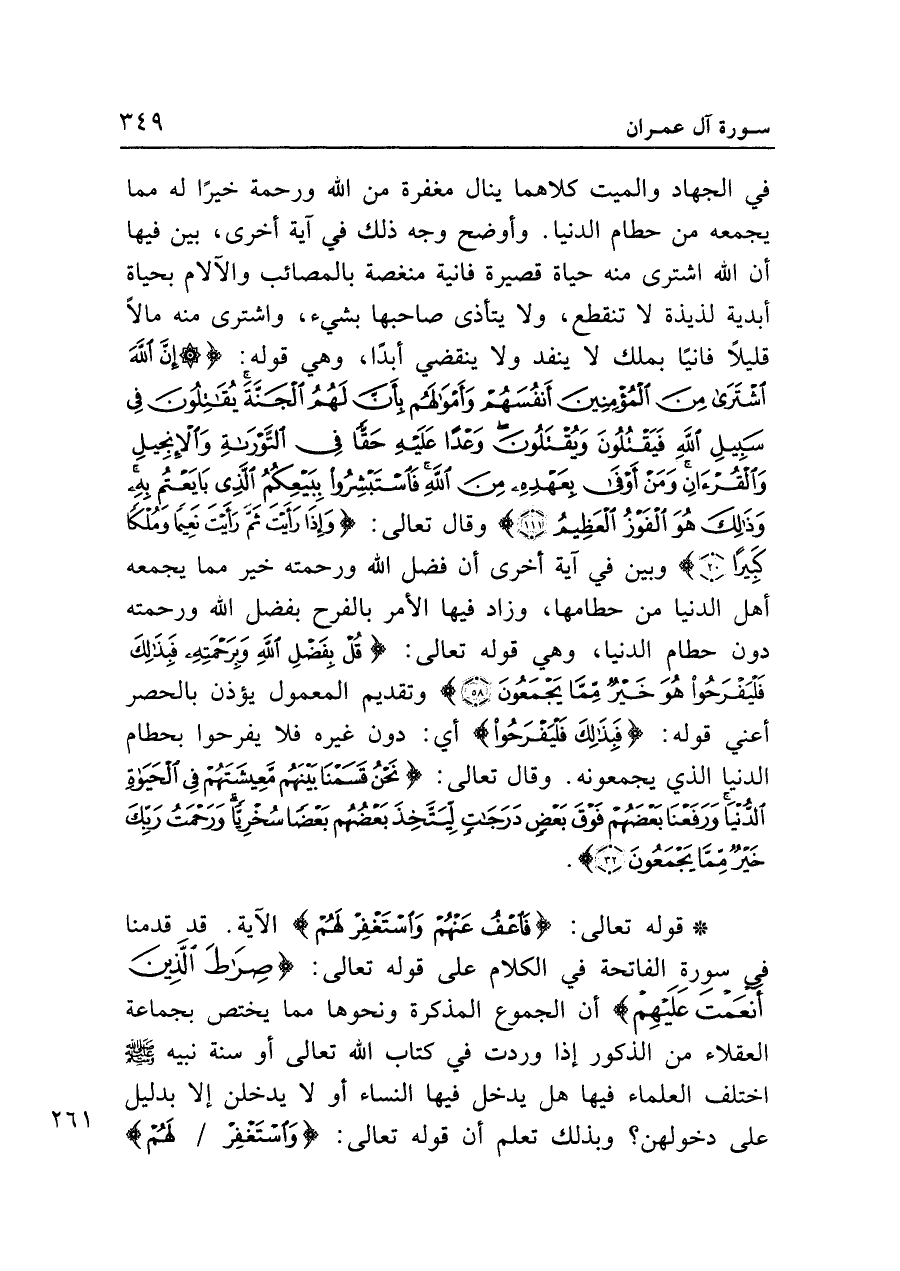 سورة آل عمران ٣٤٩
في الجهاد والميت كلاهما ينال مغفرة من الله ورحمة خيرًا له مما
يجمعه من حطام الدنيا. وأوضح وجه ذلك في آية أخرى، بين فيها
أن الله اشترى منه حياة قصيرة فانية منغصة بالمصائب والآلام بحياة
أبدية لذيذة لا تنقطع، ولا يتأذى صاحبها بشيء، واشترى منه مالاً
قليلاً فانيًا بملك لا ينفد ولا ينقضي أبدًا، وهي قوله: ﴿۞ إِنَّ ٱللَّهَ
ٱشْتَرَىٰ مِنَ ٱلْمُؤْمِنِينَ أَنفُسَهُمْ وَأَمْوَٰلَهُم بِأَنَّ لَهُمُ ٱلْجَنَّةَۚ يُقَٰتِلُونَ فِى
سَبِيلِ ٱللَّهِ فَيَقْتُلُونَ وَيُقْتَلُونَۖ وَعْدًا عَلَيْهِ حَقًّا فِى ٱلتَّوْرَىٰةِ وَٱلْإِنجِيلِ
وَٱلْقُرْءَانِۚ وَمَنْ أَوْفَىٰ بِعَهْدِهِۦ مِنَ ٱللَّهِۚ فَٱسْتَبْشِرُوا۟ بِبَيْعِكُمُ ٱلَّذِى بَايَعْتُم بِهِۦۚ
وَذَٰلِكَ هُوَ ٱلْفَوْزُ ٱلْعَظِيمُ ١١١﴾ وقال تعالى: ﴿وَإِذَا رَأَيْتَ ثَمَّ رَأَيْتَ نَعِيمًا وَمُلْكًا
كَبِيرًا ٢٠﴾ وبين في آية أخرى أن فضل الله ورحمته خير مما يجمعه
أهل الدنيا من حطامها، وزاد فيها الأمر بالفرح بفضل الله ورحمته
دون حطام الدنيا، وهي قوله تعالى: ﴿قُلْ بِفَضْلِ ٱللَّهِ وَبِرَحْمَتِهِۦ فَبِذَٰلِكَ
فَلْيَفْرَحُوا۟ هُوَ خَيْرٌ مِّمَّا يَجْمَعُونَ ٥٨﴾ وتقديم المعمول يؤذن بالحصر
أعني قوله: ﴿فَبِذَٰلِكَ فَلْيَفْرَحُوا۟﴾ أي: دون غيره فلا يفرحوا بحطام
الدنيا الذي يجمعونه. وقال تعالى: ﴿نَحْنُ قَسَمْنَا بَيْنَهُم مَّعِيشَتَهُمْ فِى ٱلْحَيَوٰةِ
ٱلدُّنْيَاۚ وَرَفَعْنَا بَعْضَهُمْ فَوْقَ بَعْضٍ دَرَجَٰتٍ لِّيَتَّخِذَ بَعْضُهُم بَعْضًا سُخْرِيًّاۗ وَرَحْمَتُ رَبِّكَ
خَيْرٌ مِّمَّا يَجْمَعُونَ ٣٢﴾.
* قوله تعالى: ﴿فَٱعْفُ عَنْهُمْ وَٱسْتَغْفِرْ لَهُمْ﴾ الآية. قد قدمنا
في سورة الفاتحة في الكلام على قوله تعالى: ﴿صِرَٰطَ ٱلَّذِينَ
أَنْعَمْتَ عَلَيْهِمْ﴾ أن الجموع المذكرة ونحوها مما يختص بجماعة
العقلاء من الذكور إذا وردت في كتاب الله تعالى أو سنة نبيه ﷺ
اختلف العلماء فيها هل يدخل فيها النساء أو لا يدخلن إلا بدليل
على دخولهن؟ وبذلك تعلم أن قوله تعالى: ﴿وَٱسْتَغْفِرْ / لَهُمْ﴾
٢٦١